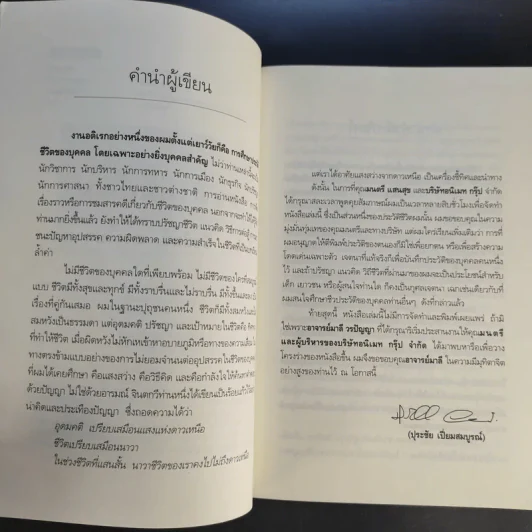 คำนำผู้เขียน
งานอดิเรกอย่างหนึ่งของผมตั้งแต่เยาว์วัยก็คือ การศึกษา
ชีวิตของบุคคล โดยเฉพาะอย่างยิ่งบุคคลสำคัญ ไม่ว่า
นักวิชาการ นักบริหาร นักการทหาร นักการเมือง นักธุรกิจ
นักการศาสนา ทั้งชาวไทยและชาวต่างชาติ การอ่านหนังสือ
เรื่องราวหรือการชมสารคดีเกี่ยวกับชีวิตของบุคคล นอกจาก
ท่านมากยิ่งขึ้นแล้ว ยังทำให้ได้ทราบปรัชญาชีวิต แนวคิด
ชนะปัญหาอุปสรรค ความผิดพลาด และความสำเร็จในชีวิต
ล้ำค่า
ไม่มีชีวิตของบุคคลใดที่เพียบพร้อม ไม่มีชีวิตของใคร
แบบ ชีวิตมีทั้งสุขและทุกข์ มีทั้งราบรื่นและไม่ราบรื่น มีทั้งขึ้นและ
เรื่องที่คู่กันเสมอ ผมในฐานะปุถุชนคนหนึ่ง ชีวิตก็มีทั้ง
สมหวังเป็นธรรมดา แต่อุดมคติ ปรัชญา และเป้าหมายในชีวิต
ที่ทำให้ชีวิต เมื่อผิดหวังไม่หักเหเข้าหาอบายภูมิหรือทางของความเสื่อม
ทางตรงข้ามแบบอย่างของการไม่ยอมจำนนต่ออุปสรรคในชีวิตของ
ที่ผมได้เคยศึกษา คือแสงสว่าง คือวิธีคิด และคือกำลังใจให้
ด้วยปัญญา ไม่ใช่ด้วยอารมณ์ จินตกวีท่านหนึ่งได้เขียน
น่าคิดและประเทืองปัญญา ซึ่งถอดความได้ว่า
อุดมคติ เปรียบเสมือนแสงแห่งดาวเหนือ
ชีวิตเปรียบเสมือนนาวา
ในช่วงชีวิตที่แสนสั้น นาวาชีวิตของเราคงไปไม่ถึงดาวเหนือ
แต่เราได้อาศัยแสงสว่างจากดาวเหนือ เป็นเครื่องชี้ทิศและนำทาง
ดังนั้น ในการที่คุณมนตรี แสนสุข และบริษัทอนิเมท กรุ๊ป จำกัด
ได้กรุณาสละเวลาพูดคุยสัมภาษณ์ผมเป็นเวลาหลายสิบชั่วโมงเพื่อจัดทำ
หนังสือเล่มนี้ ซึ่งเป็นส่วนหนึ่งของประวัติชีวิตผมนั้น ผมขอขอบคุณในความ
มุ่งมั่นทุ่มเทของคุณมนตรีและทางบริษัท แต่ผมใคร่เรียนเพิ่มเติมว่า การที่
ผมอนุญาตให้ตีพิมพ์ประวัติของตนเองก็มิใช่เพื่อยกตน หรือเพื่อสร้างความ
โดดเด่นเฉพาะตัว เจตนาที่แท้จริงก็เพื่อบันทึกประวัติของบุคคลคนหนึ่ง
ไว้ และถ้าปรัชญา แนวคิด วิถีชีวิตที่ผ่านมาของผมจะเป็นประโยชน์สำหรับ
เด็ก เยาวชน หรือผู้สนใจท่านใด ก็คงเป็นกุศลเจตนา เฉกเช่นเดียวกับที่
ผมสนใจศึกษาชีวประวัติของบุคคลท่านอื่นๆ ดังที่กล่าวแล้ว
ท้ายสุดนี้ หนังสือเล่มนี้ไม่มีการจัดทำและพิมพ์เผยแพร่ ถ้ามิ
ใช่เพราะอาจารย์มาลี วรปัญญา ที่ได้กรุณาริเริ่มประสานงานให้คุณมนตรี
และผู้บริหารของบริษัทอนิเมท กรุ๊ป จำกัด ได้มาพบหารือเพื่อวาง
โครงร่างของหนังสือขึ้น ผมจึงขอขอบคุณอาจารย์มาลี ในความมีมุทิตาจิต
อย่างสูงของท่านไว้ ณ โอกาสนี้
(ปุระชัย เปี่ยมสมบูรณ์)